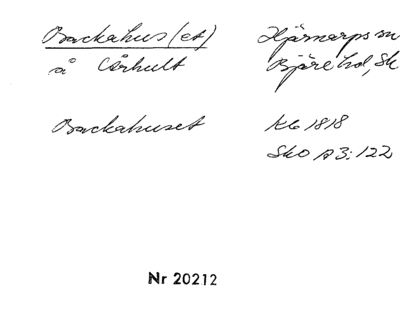 Backahus (et) Hjärnarps sn
å Århult Bjäre hd, Sk
Backahuset Kb 1818
Sko A3:122
Nr 20212